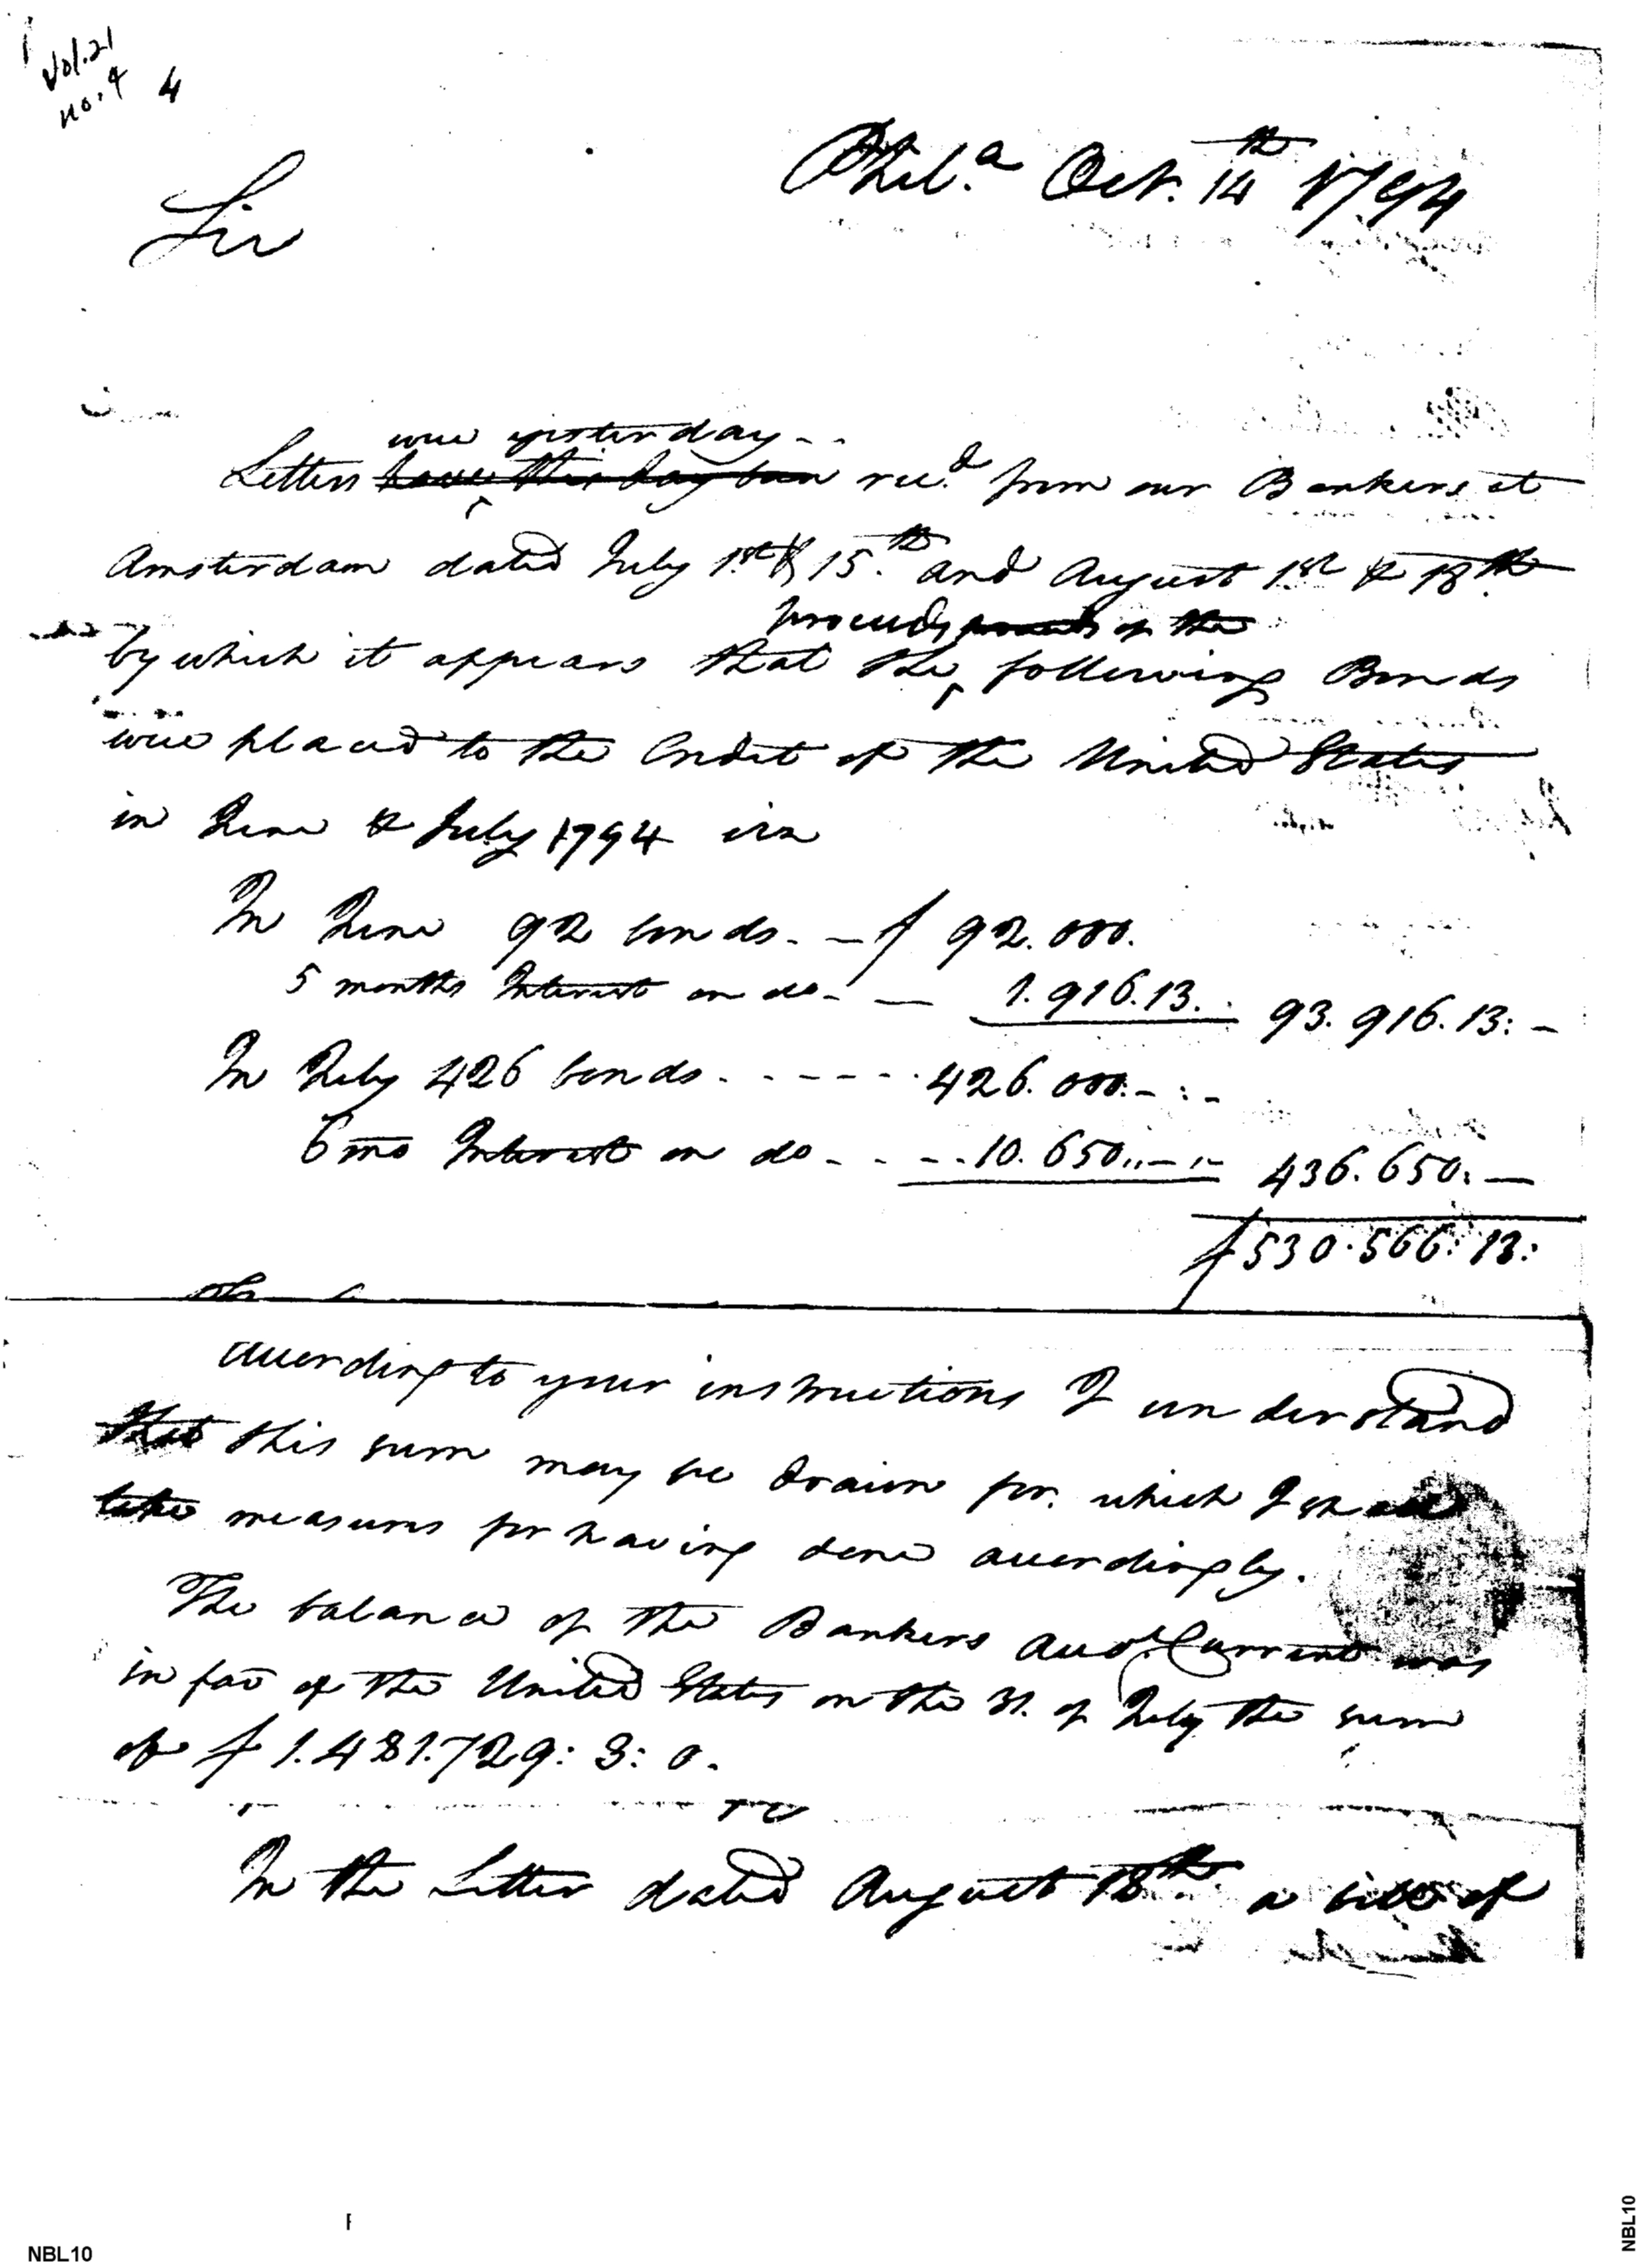 Vol. 21
no. 4 4
Phil.a Oct. 14th 1794
Sir
were yesterday
Letters have this day been recd. from our Bankers at
Amsterdam dated July 1st & 15.th and August 1st & 18th
proceeds of the
by which it appears that the following Bonds
were placed to the Credit of the United States
in June & July 1794 viz
In June 92 bonds. — f 92.000.
5 months Interest on do. — 1.916.13. 93.916.13: —
In July 426 bonds. - - - - - 426.000. - : -
6 mo Interest on do - - - - 10.650.. — 436.650: —
f 530.566: 13:
according to your instructions I understand
that this sum may be drawn for. which I shall
take measures for having done accordingly.
The balance of the Bankers Acct Current was
in fav of the United States on the 31. of July the sum
of f 1.481.729: 3: 0.
In the Letter dated August 18th a bill of
NBL10
NBL10